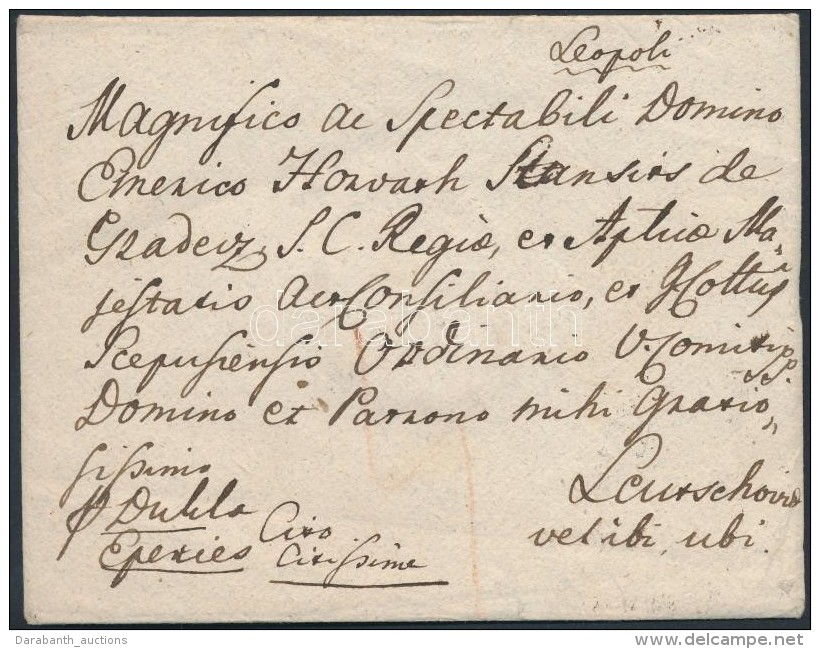 Leopoli
Magnifico ac Spectabili Domino
Emerico Horvath Stansits de
Gradecz, S. C. Regiæ, et Aplicæ Ma„
jestatis Consiliario, et ICottus
Scepusiensis Ordinario V. Comiti pp.
Domino et Patrono mihi Gratio„
sissimo
Leutschoviæ
p Dukla Cito
vel ibi, ubi.
Eperies Citissime
darabanth
Darabanth_auctions
delcampe.net